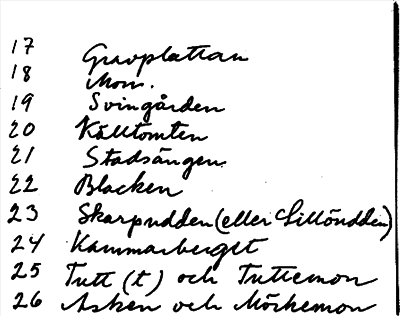 17 Gravplattan
18 Mon.
19 Svingården
20 Källtomten
21 Stadsängen
22 Blacken
23 Skarpudden (eller Lillöudden)
24 Kammarberget
25 Tutt(t) och Tuttemon
26 Asken och Mörkemon